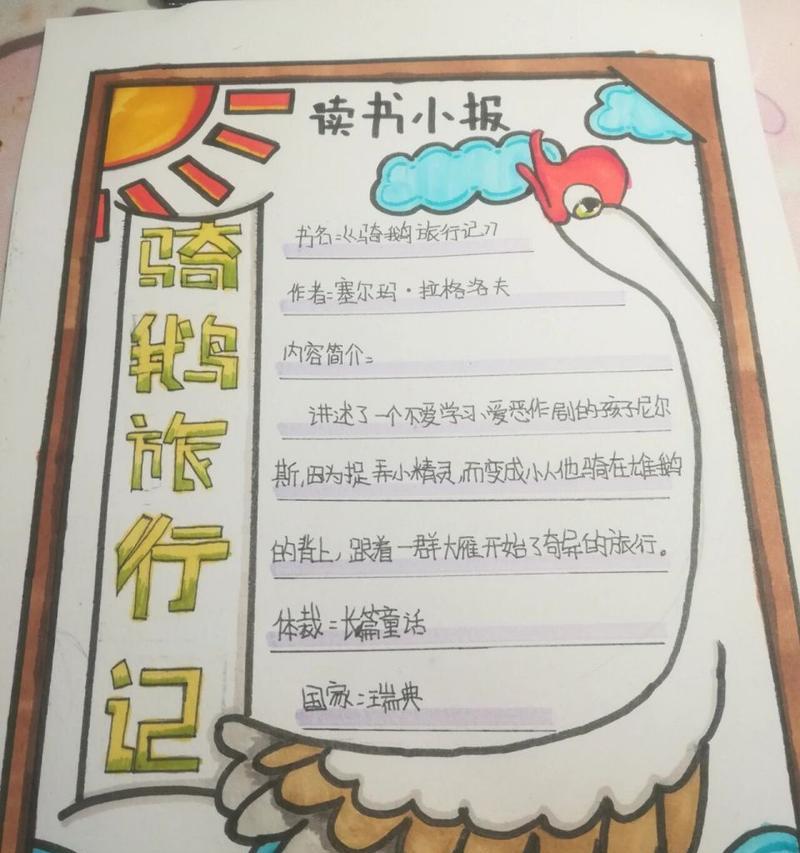 读书小报
骑鹅旅行记
书名:《骑鹅旅行记》
作者:塞尔玛·拉格洛夫
内容简介:
讲述了一个不爱学习、爱恶作剧的孩子尼尔
斯,因为捉弄小精灵,而变成小人他骑在雄鹅
的背上,跟着一群大雁开始了奇异的旅行。
体裁:长篇童话
国家:瑞典